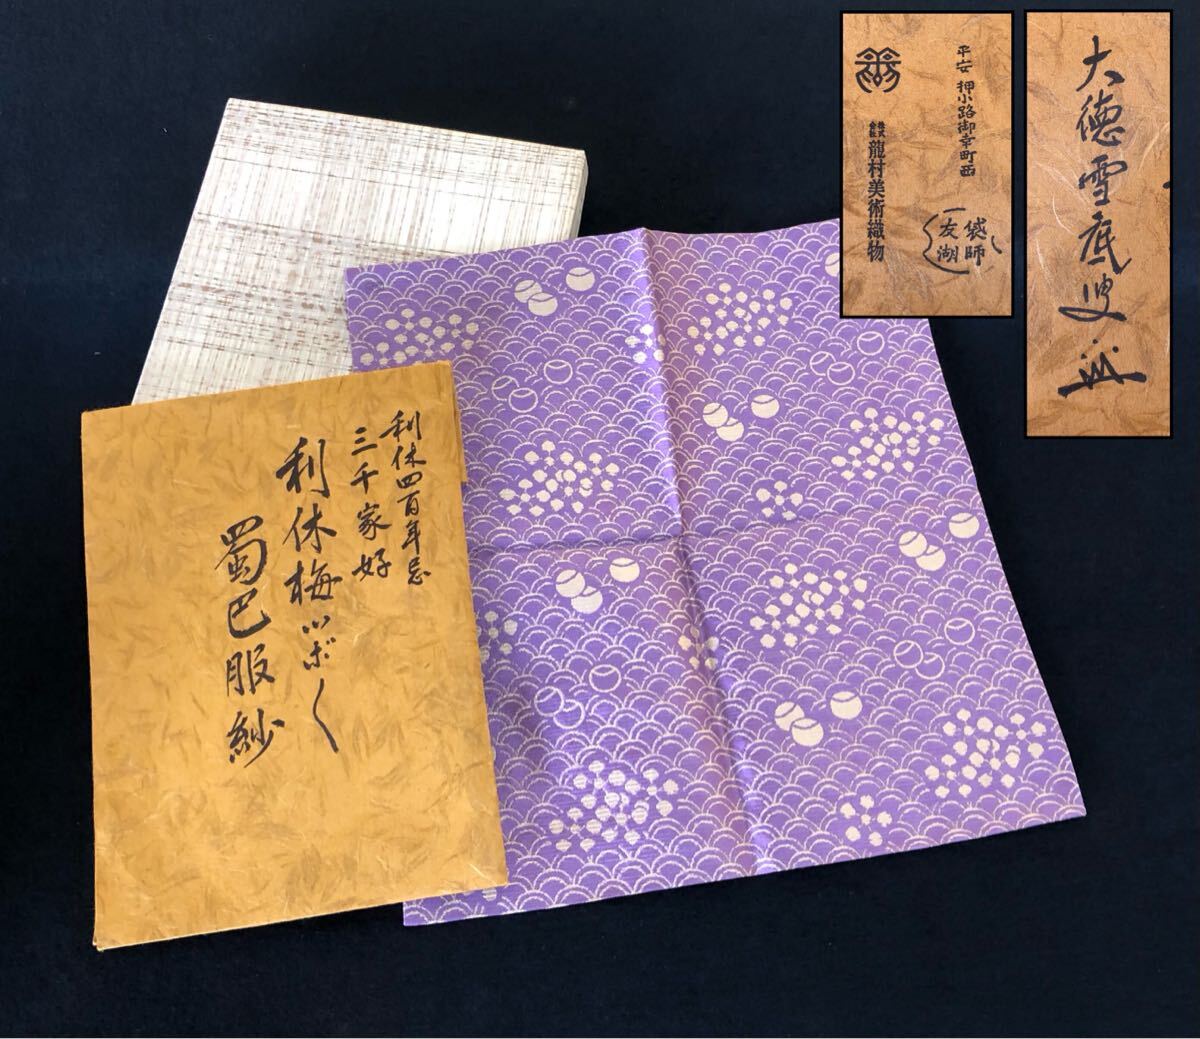 利休四百年忌
三千家好
利休梅ツボ〱
蜀巴服紗
平安 押小路御幸町西
株式会社 龍村美術織物
袋師
友湖
大徳雪底叟